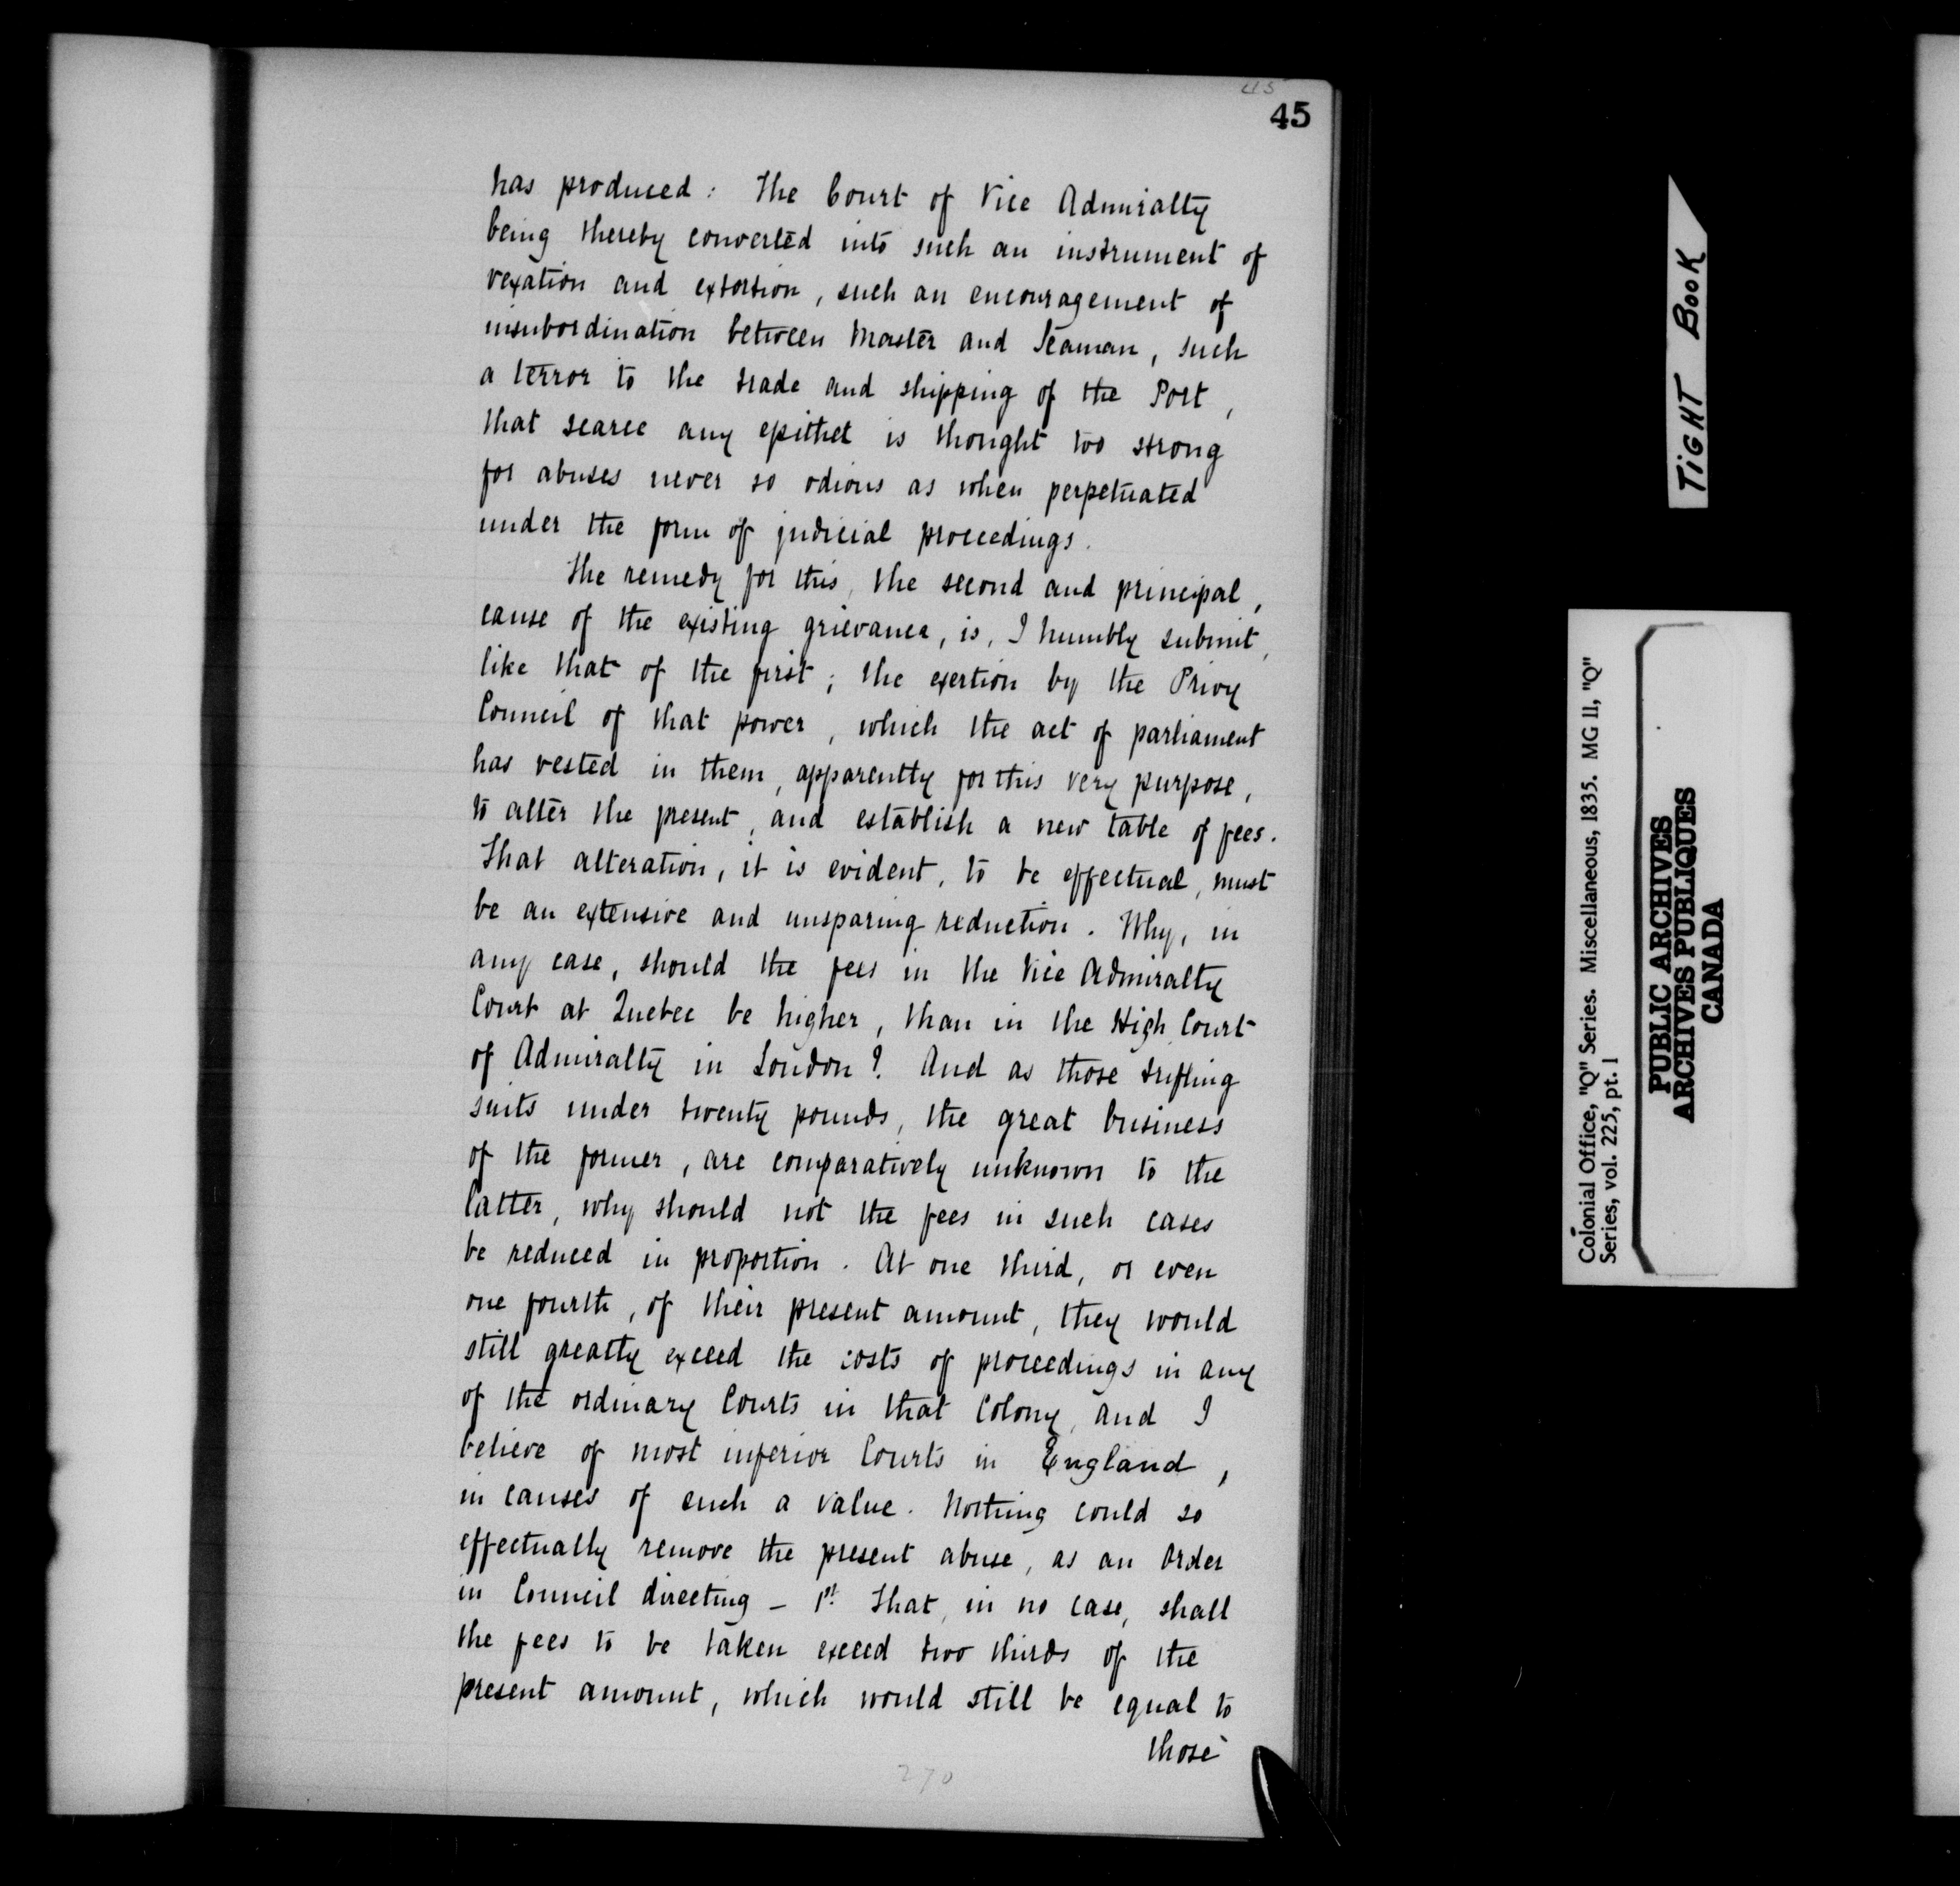 45
45
has produced: The Court of Vice Admiralty
being thereby converted into such an instrument of
vexation and extortion, such an encouragement of
insubordination between Master and Seaman, such
a terror to the trade and shipping of the Port,
that scarce any epithet is thought too strong
for abuses never so odious as when perpetuated
under the form of judicial proceedings.
The remedy for this, the second and principal,
cause of the existing grievance, is, I humbly submit,
like that of the first; the exertion by the Privy
Council of that power, which the act of parliament
has vested in them, apparently for this very purpose,
to alter the present, and establish a new table of fees.
That alteration, it is evident, to be effectual, must
be an extensive and unsparing reduction. Why, in
any case, should the fees in the Vice Admiralty
Court at Quebec be higher, than in the High Court
of Admiralty in London? And as those trifling
suits under twenty pounds, the great business
of the former, are comparatively unknown to the
latter, why should not the fees in such cases
be reduced in proportion. At one third, or even
one fourth, of their present amount, they would
still greatly exceed the costs of proceedings in any
of the ordinary Courts in that Colony, and I
believe of most inferior Courts in England,
in causes of such a value. Nothing could so
effectually remove the present abuse, as an order
in Council directing – 1st. That, in no case, shall
the fees to be taken exceed two thirds of the
present amount, which would still be equal to
those
270
TIGHT BOOK
Colonial Office, "Q" Series. Miscellaneous, 1835. MG 11, "Q"
Series, vol. 225, pt. 1
PUBLIC ARCHIVES
ARCHIVES PUBLIQUES
CANADA